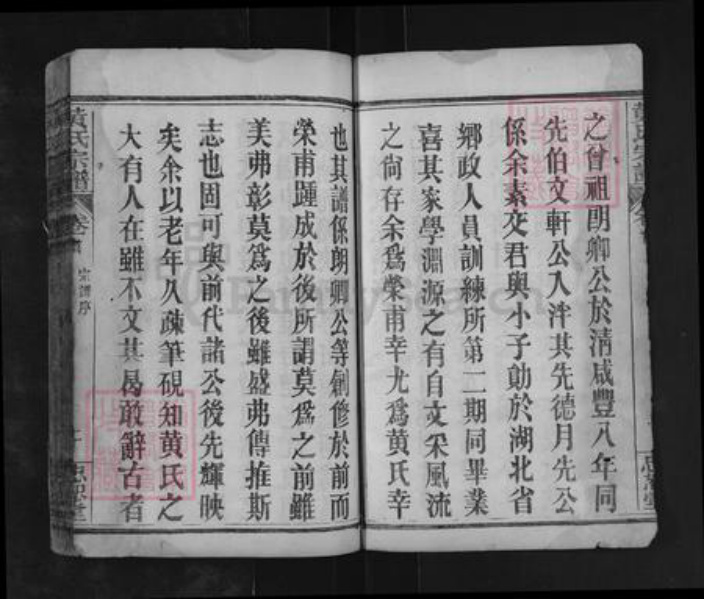 之曾祖朗卿公於清咸豐八年同
先伯文軒公入泮其先德月先公
係余素交君與小子勛於湖北省
鄉政人員訓練所第二期同畢業
喜其家學淵源之有自文采風流
之尚存余為榮甫幸尤為黄氏幸
也其譜係朗卿公等創修於前而
榮甫踵成於後所謂莫為之前雖
美弗彰莫為之後雖盛弗傳推斯
志也固可與前代諸公後先輝映
矣余以老年久疎筆硯知黄氏之
大有人在雖不文其曷敢辭古者
黄氏宗譜
卷首
宗譜序
FamilySearch